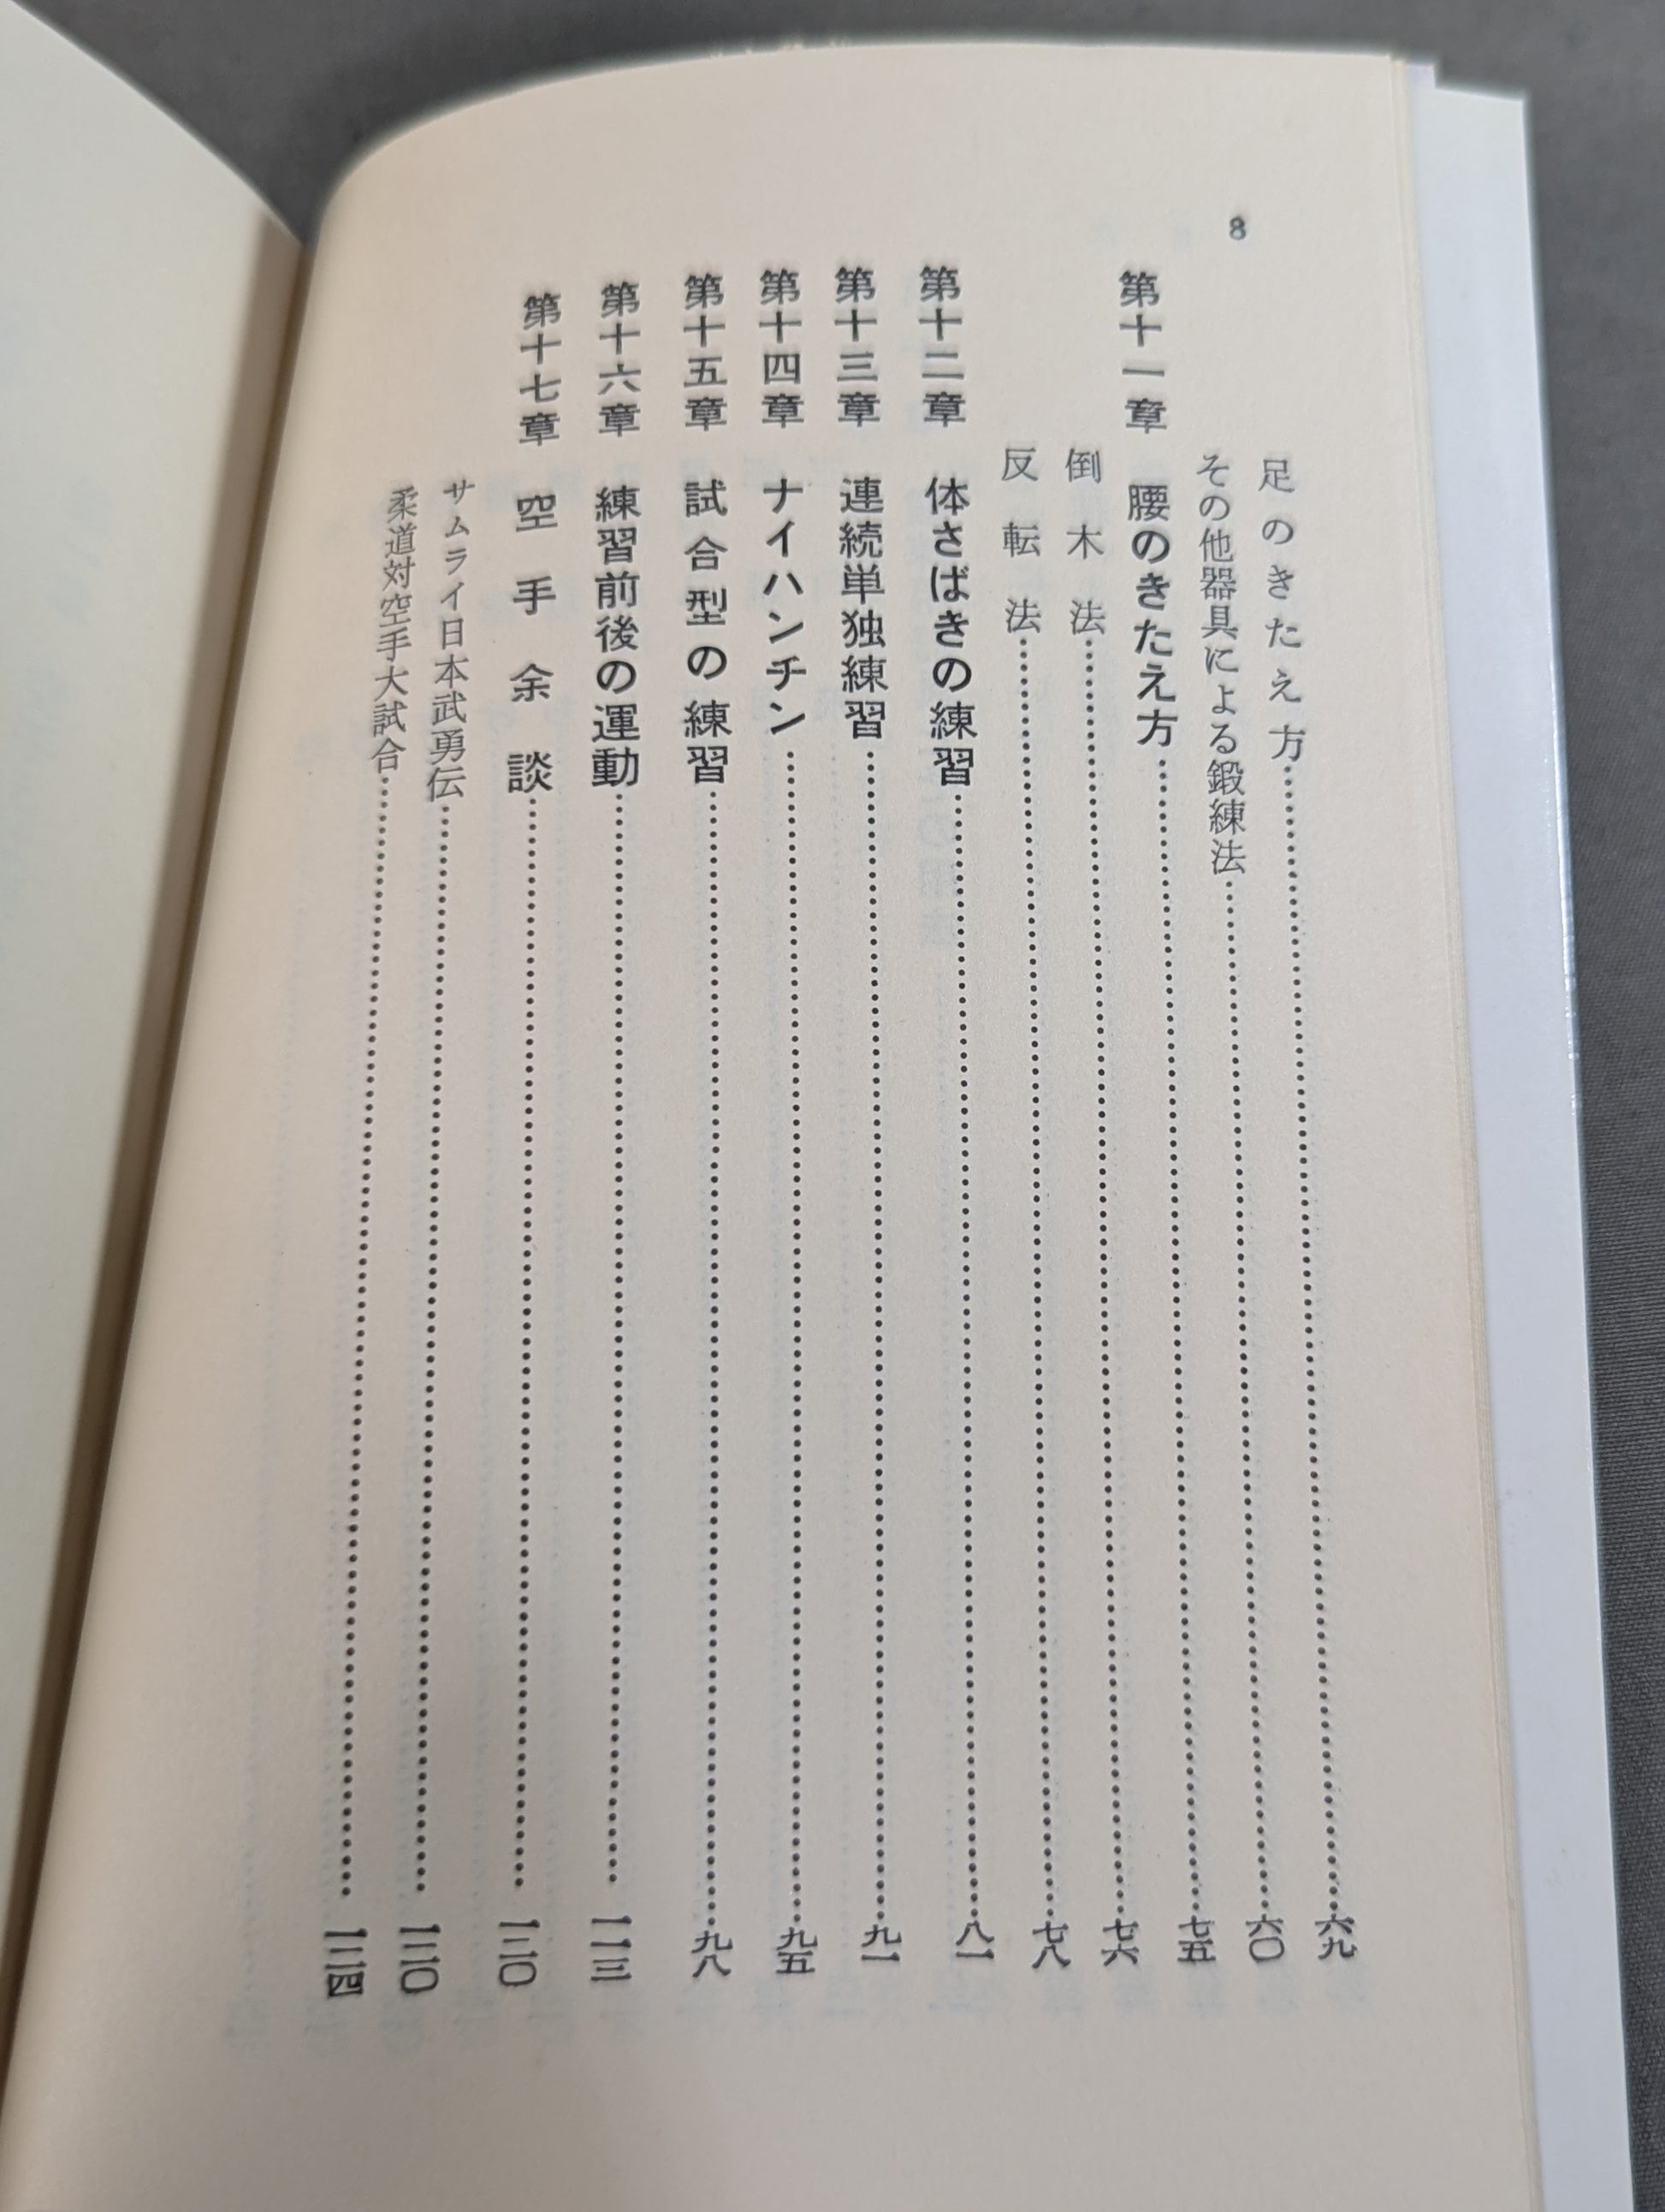 8
足のきたえ方……六九
その他器具による鍛練法……六〇
第十一章 腰のきたえ方……七五
倒木法……七六
反転法……七八
第十二章 体さばきの練習……八一
第十三章 連続単独練習……九一
第十四章 ナイハンチン……九五
第十五章 試合型の練習……九八
第十六章 練習前後の運動……一一三
第十七章 空手余談……一二〇
サムライ日本武勇伝……一二〇
柔道対空手大試合……一二四